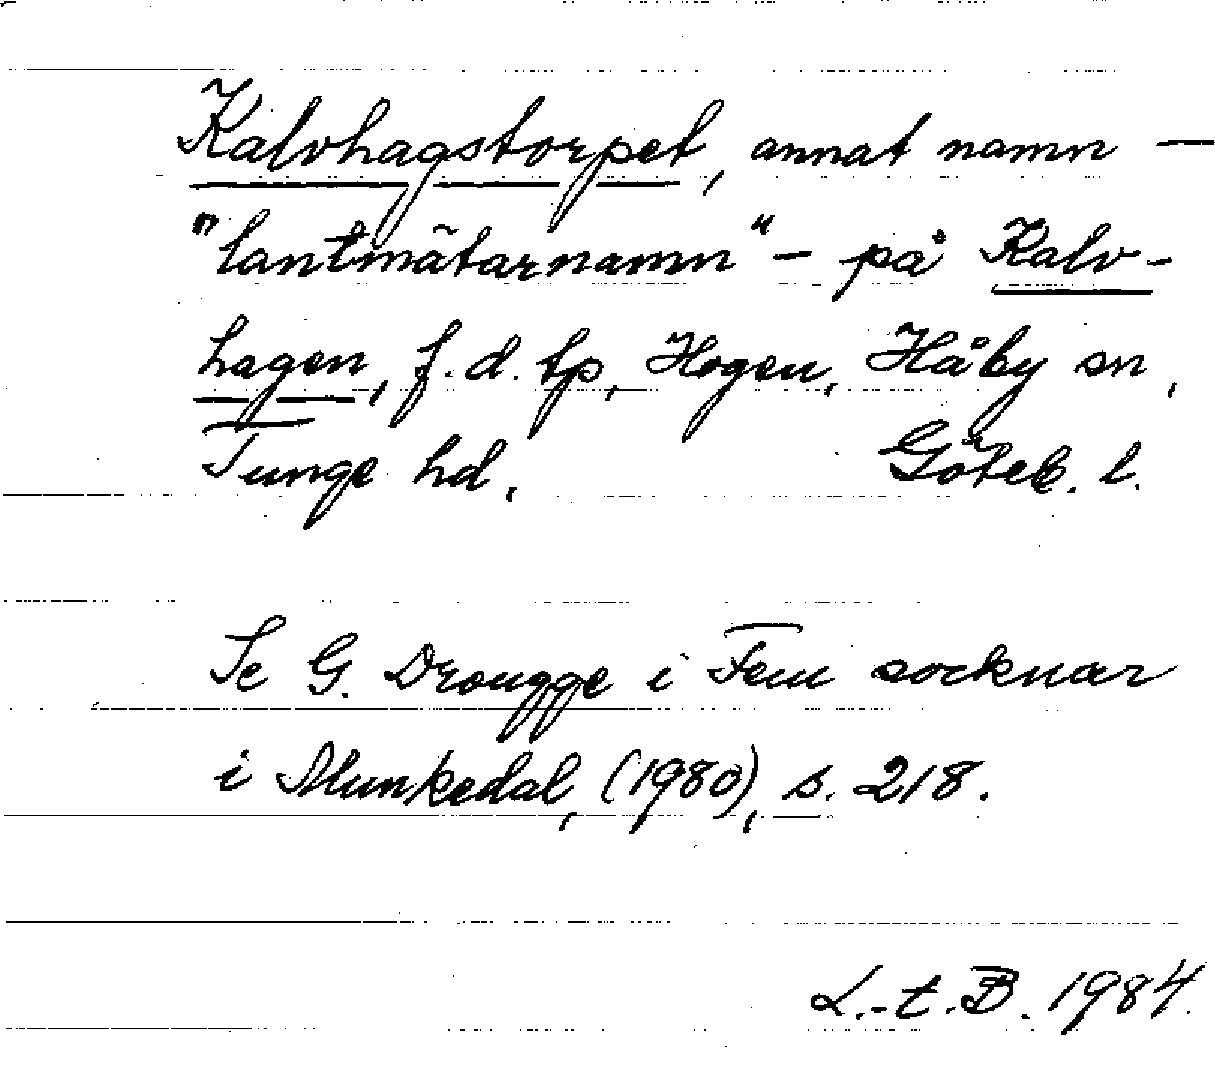 Kalvhagstorpet, annat namn —
"lantmätarnamn" – på Kalv-
hagen, f.d. tp, Hogen, Håby sn,
Tunge hd. Göteb. l.
Se G. Drougge i Fem socknar
i Munkedal, (1980), s. 218.
L.-t.B. 1984.